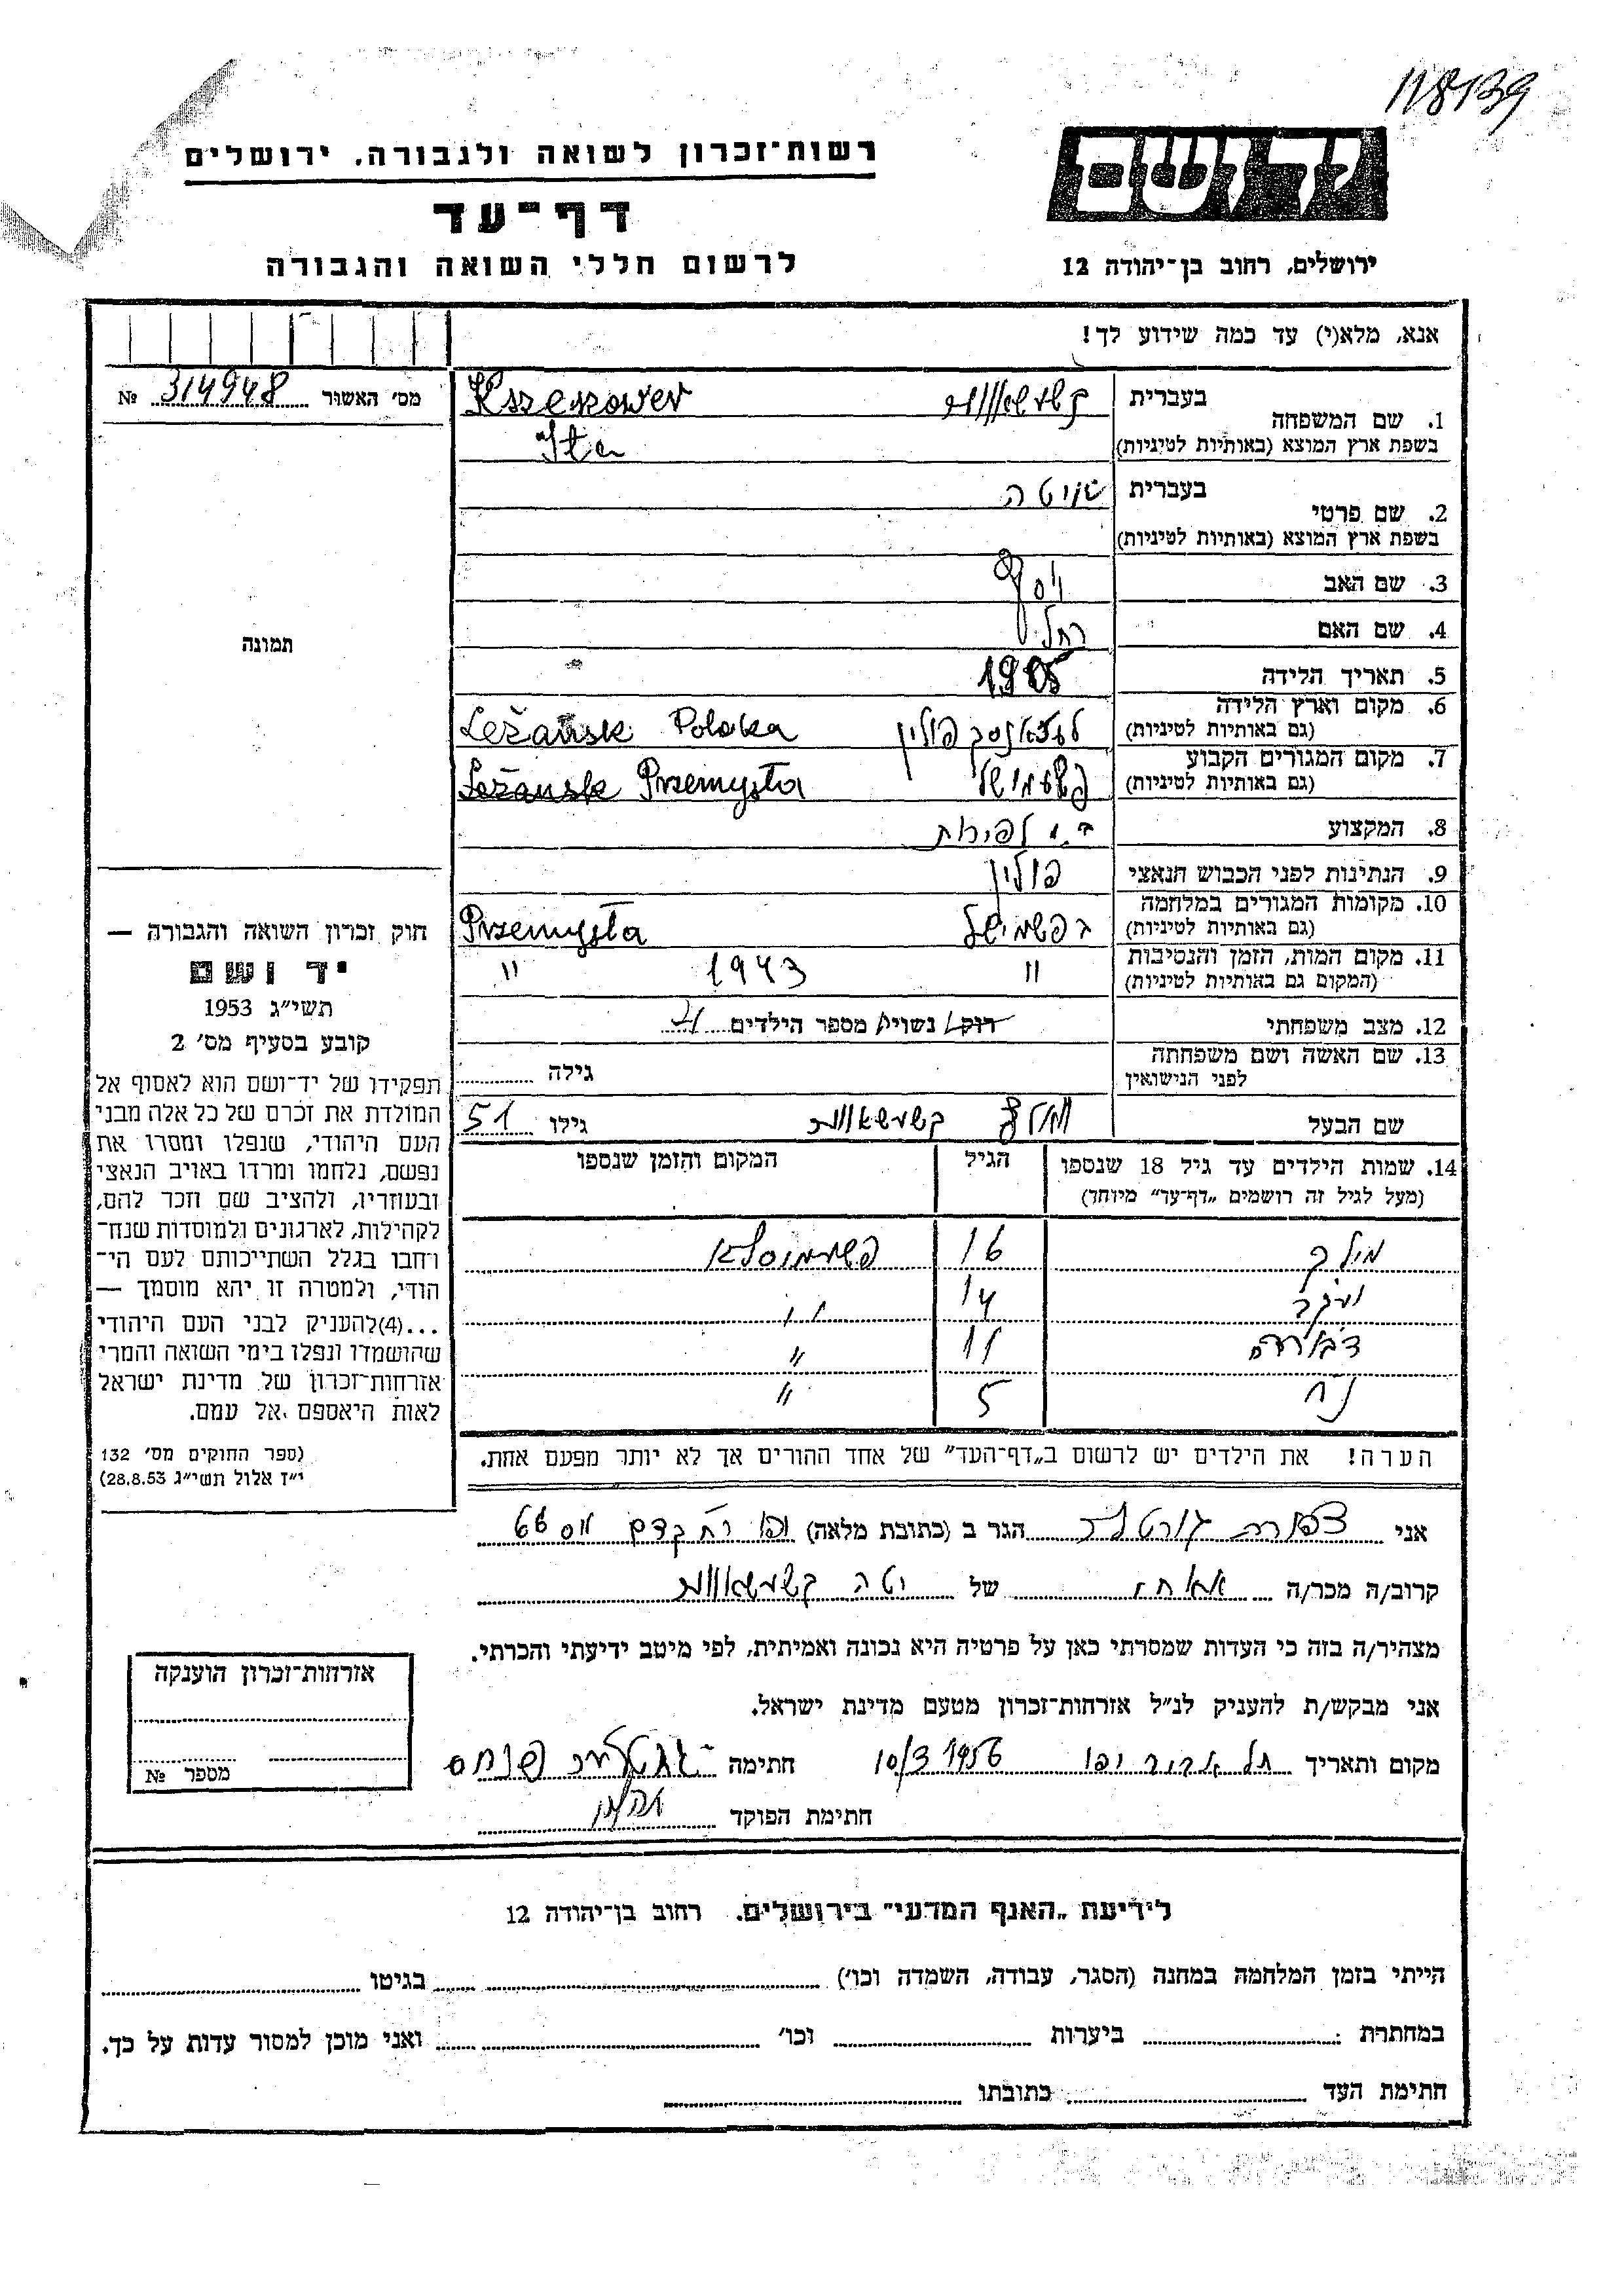 118139
רשות־זכרון לשואה ולגבורה, ירושלים
יד ושם
דף־עד
לרשום חללי השואה והגבורה
ירושלים, רחוב בן־יהודה 12
אנא, מלא(י) עד כמה שידוע לך!
מס׳ האשור 314948 №
1. שם המשפחה בעברית
בשפת ארץ המוצא (באותיות לטיניות) Kszeszower
Ita
2. שם פרטי בעברית יטה
בשפת ארץ המוצא (באותיות לטיניות)
3. שם האב יוסף
4. שם האם רחל
5. תאריך הלידה 1905
6. מקום וארץ הלידה (גם באותיות לטיניות) פולין Leżańsk Polska
7. מקום המגורים הקבוע (גם באותיות לטיניות) Leżansk Przemysła
8. המקצוע
9. הנתינות לפני הכבוש הנאצי פולין
10. מקומות המגורים במלחמה (גם באותיות לטיניות) Przemysła
11. מקום המות, הזמן והנסיבות (המקום גם באותיות לטיניות) " 1943 "
12. מצב משפחתי רוק/ נשוי/ה מספר הילדים 4
13. שם האשה ושם משפחתה לפני הנישואין גילה
שם הבעל גילו 51
תמונה
חוק זכרון השואה והגבורה —
יד ושם
תשי״ג 1953
קובע בסעיף מס׳ 2
תפקידו של יד־ושם הוא לאסוף אל
המולדת את זכרם של כל אלה מבני
העם היהודי, שנפלו ומסרו את
נפשם, נלחמו ומרדו באויב הנאצי
ובעוזריו, ולהציב שם וזכר להם,
לקהילות, לארגונים ולמוסדות שנח־
רחבו בגלל השתייכותם לעם הי־
הודי, ולמטרה זו יהא מוסמך —
...(4) להעניק לבני העם היהודי
שהושמדו ונפלו בימי השואה והמרי
אזרחות־זכרון של מדינת ישראל
לאות היאספם אל עמם.
(ספר החוקים מס׳ 132
י״ז אלול תשי״ג 28.8.53)
14. שמות הילדים עד גיל 18 שנספו הגיל המקום והזמן שנספו
(מעל לגיל זה רושמים „דף־עד״ מיוחד)
16
14 "
11 "
5 "
הערה! את הילדים יש לרשום ב„דף־העד״ של אחד ההורים אך לא יותר מפעם אחת.
אני צפורה הגר ב (כתובת מלאה) יפו רח
קרוב/ה מכר/ה של יטה
מצהיר/ה בזה כי העדות שמסרתי כאן על פרטיה היא נכונה ואמיתית, לפי מיטב ידיעתי והכרתי.
אני מבקש/ת להעניק לנ״ל אזרחות־זכרון מטעם מדינת ישראל.
מקום ותאריך תל אביב יפו 10/3 1956 חתימה
חתימת הפוקד
אזרחות־זכרון הוענקה
מספר №
לידיעת „האגף המדעי״ בירושלים. רחוב בן־יהודה 12
הייתי בזמן המלחמה במחנה (הסגר, עבודה, השמדה וכו׳) בגיטו
במחתרת ביערות וכו׳ ואני מוכן למסור עדות על כך.
חתימת העד כתובתו